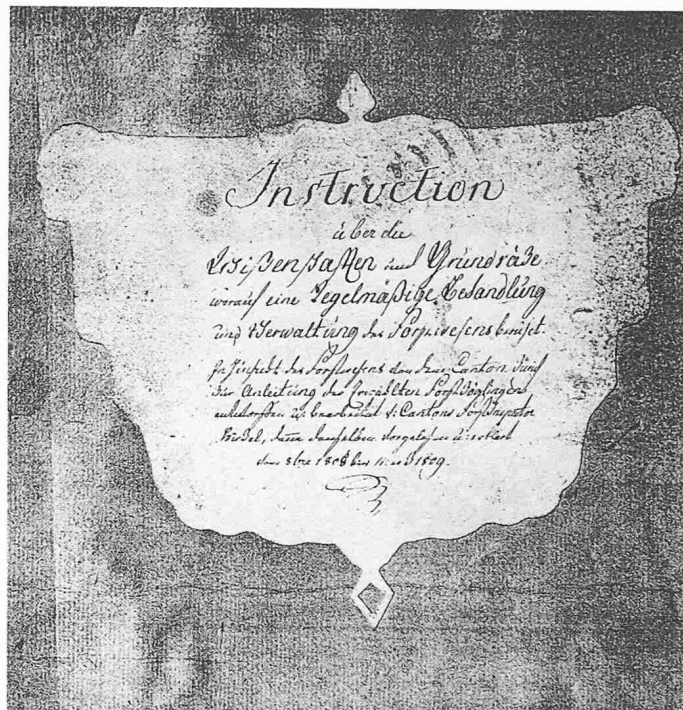 Instruction
über die
Wißenschafften und Grundsäße
worauf eine Regelmäßige Behandlung
und Verwaltung des Forstwesens beruhet.
In Hinsicht des Forstwesens des Canton Zürich
Zur Anleitung der Forstzöglingen
entworffen u: bearbeitet v: Cantons Forst Inspector
denselben vorgelesen u: erklert
1808 bis 1809.